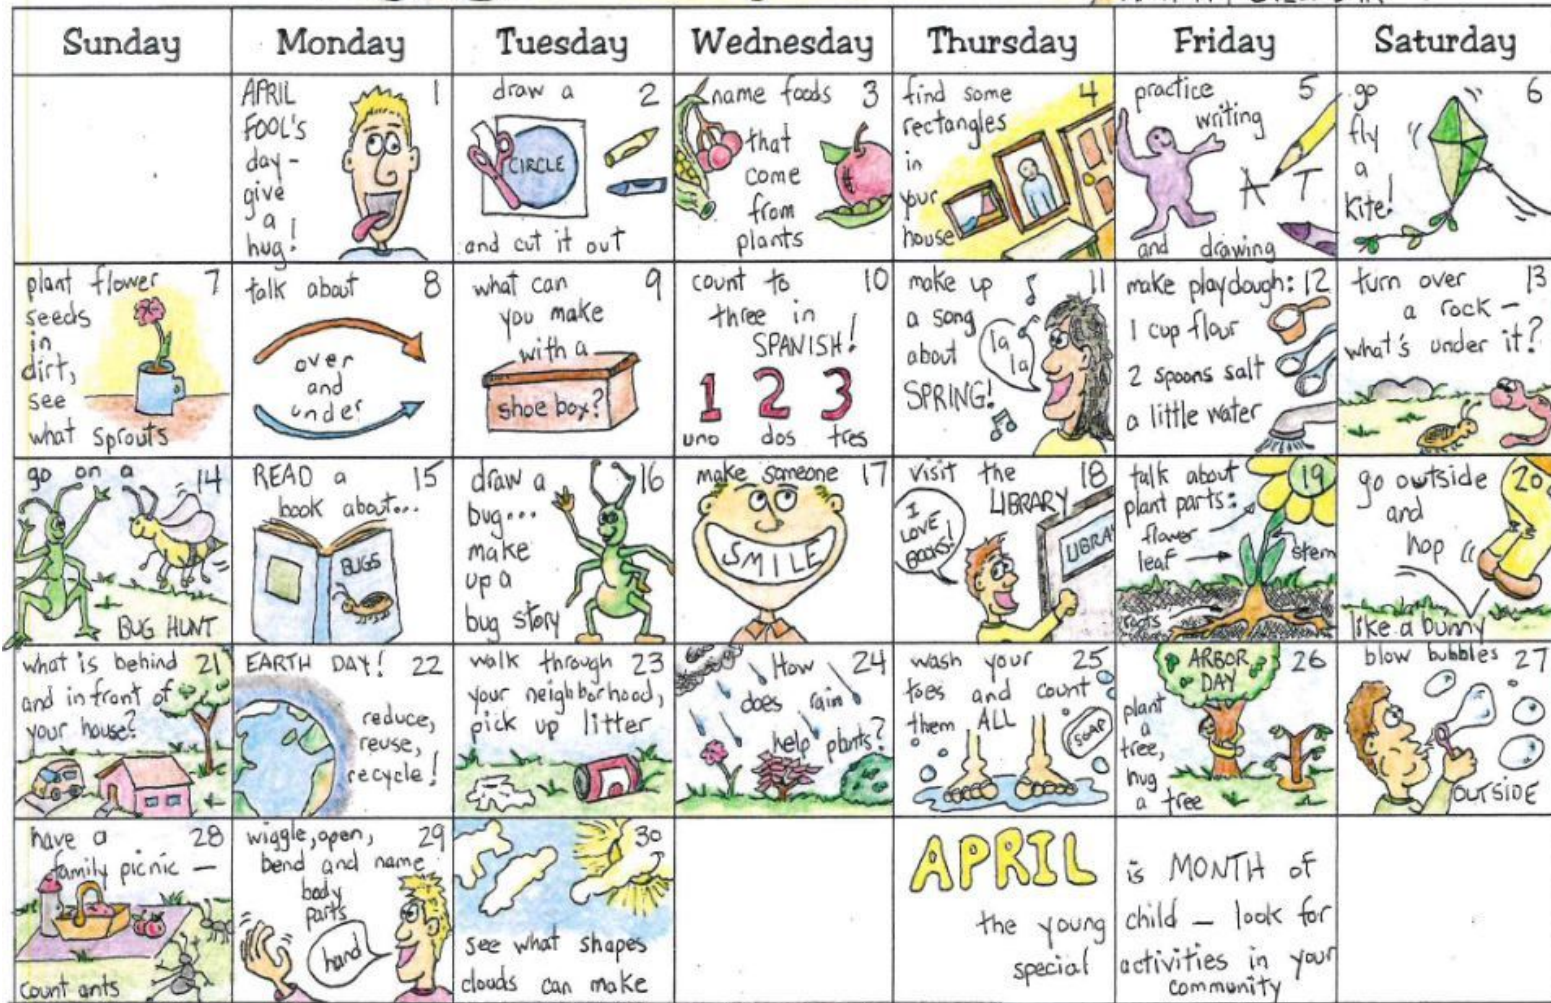 Sunday Monday Tuesday Wednesday Thursday Friday Saturday
APRIL 1
FOOL'S
day -
give
a
hug!
draw a 2
CIRCLE
and cut it out
name foods 3
that
come
from
plants
find some 4
rectangles
in
your
house
practice 5
writing
A T
and drawing
go 6
fly
a
kite!
plant flower 7
seeds
in
dirt,
see
what sprouts
talk about 8
over
and
under
what can 9
you make
with a
shoe box?
count to 10
three in
SPANISH!
1 2 3
uno dos tres
make up 11
a song
about
SPRING!
la
la
make playdough: 12
1 cup flour
2 spoons salt
a little water
turn over 13
a rock -
what's under it?
go on a 14
BUG HUNT
READ a 15
book about...
BUGS
draw a 16
bug...
make
up a
bug story
make someone 17
SMILE
visit the 18
LIBRARY
I
LOVE
BOOKS!
LIBRA
talk about 19
plant parts:
flower
leaf
stem
roots
go outside 20
and
hop
like a bunny
what is behind 21
and in front of
your house?
EARTH DAY! 22
reduce,
reuse,
recycle!
walk through 23
your neighborhood,
pick up litter
How 24
does rain
help plants?
wash your 25
toes and count
them ALL
SOAP
ARBOR 26
DAY
plant
a
tree,
hug
a tree
blow bubbles 27
OUTSIDE
have a 28
family picnic -
count ants
wiggle, open, 29
bend and name
body
parts
hand
30
see what shapes
clouds can make
APRIL
the young
special
is MONTH of
child - look for
activities in your
community